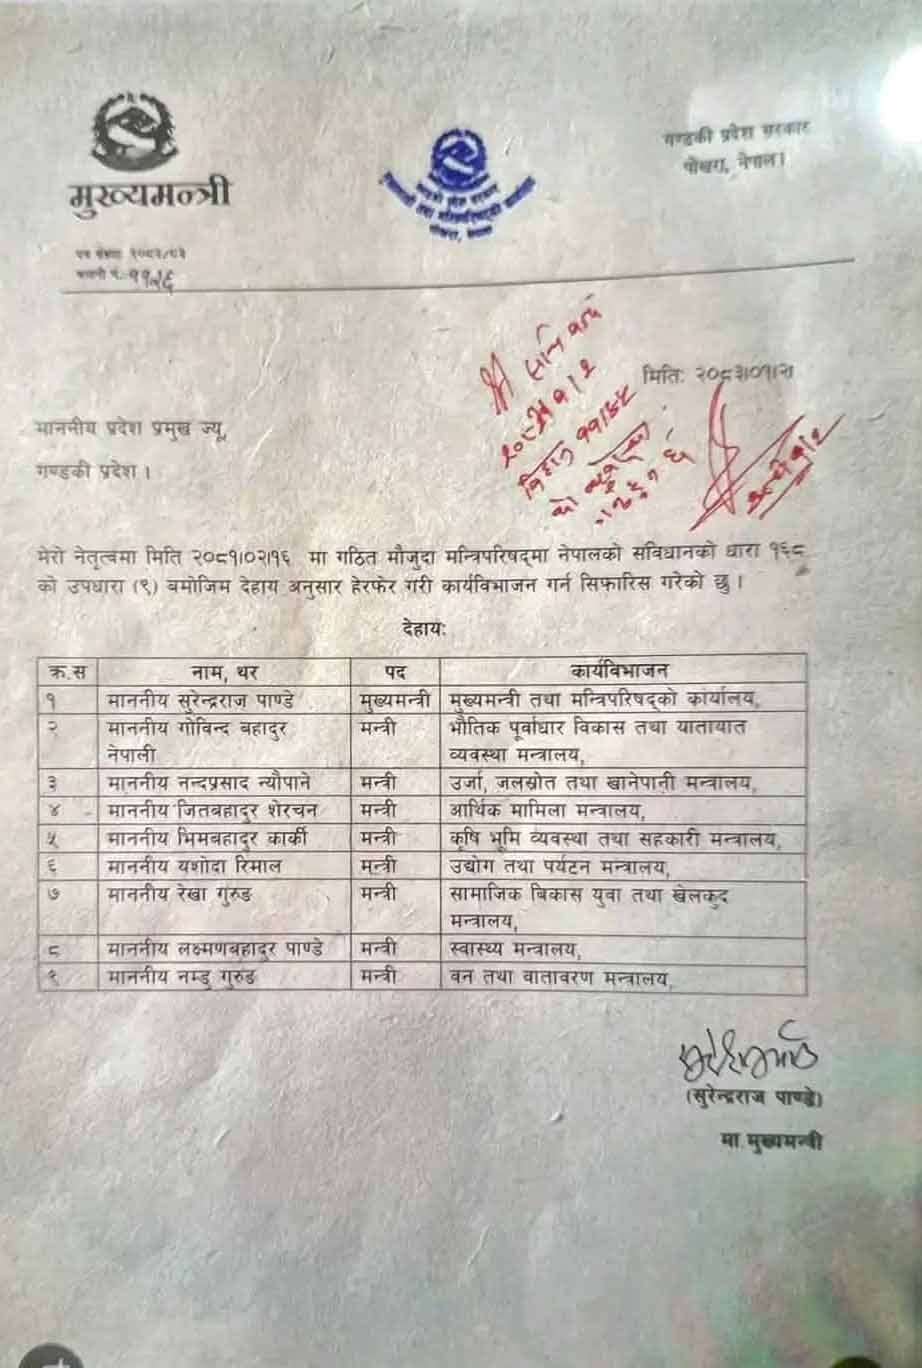 मुख्यमन्त्री
गण्डकी प्रदेश सरकार
पोखरा, नेपाल।
पत्र संख्याः २०८२/८३
चलानी नं.
मितिः २०८३।०१।२।
माननीय प्रदेश प्रमुख ज्यू,
गण्डकी प्रदेश ।
मेरो नेतृत्वमा मिति २०८१।०२।१६ मा गठित मौजुदा मन्त्रिपरिषद्‌मा नेपालको संविधानको धारा १६८
को उपधारा (९) बमोजिम देहाय अनुसार हेरफेर गरी कार्यविभाजन गर्न सिफारिस गरेको छु ।
देहायः
क्र.स नाम, थर पद कार्यविभाजन
१ माननीय सुरेन्द्रराज पाण्डे मुख्यमन्त्री मुख्यमन्त्री तथा मन्त्रिपरिषद्‌को कार्यालय,
२ माननीय गोविन्द बहादुर मन्त्री भौतिक पूर्वाधार विकास तथा यातायात
नेपाली व्यवस्था मन्त्रालय,
३ माननीय नन्दप्रसाद न्यौपाने मन्त्री उर्जा, जलस्रोत तथा खानेपानी मन्त्रालय,
४ माननीय जितबहादुर शेरचन मन्त्री आर्थिक मामिला मन्त्रालय,
५ माननीय भिमबहादुर कार्की मन्त्री कृषि भूमि व्यवस्था तथा सहकारी मन्त्रालय,
६ माननीय यशोदा रिमाल मन्त्री उद्योग तथा पर्यटन मन्त्रालय,
७ माननीय रेखा गुरुङ मन्त्री सामाजिक विकास युवा तथा खेलकुद
मन्त्रालय,
८ माननीय लक्ष्मणबहादुर पाण्डे मन्त्री स्वास्थ्य मन्त्रालय,
९ माननीय नम्डु गुरुङ मन्त्री वन तथा वातावरण मन्त्रालय,
(सुरेन्द्रराज पाण्डे)
मा.मुख्यमन्त्री